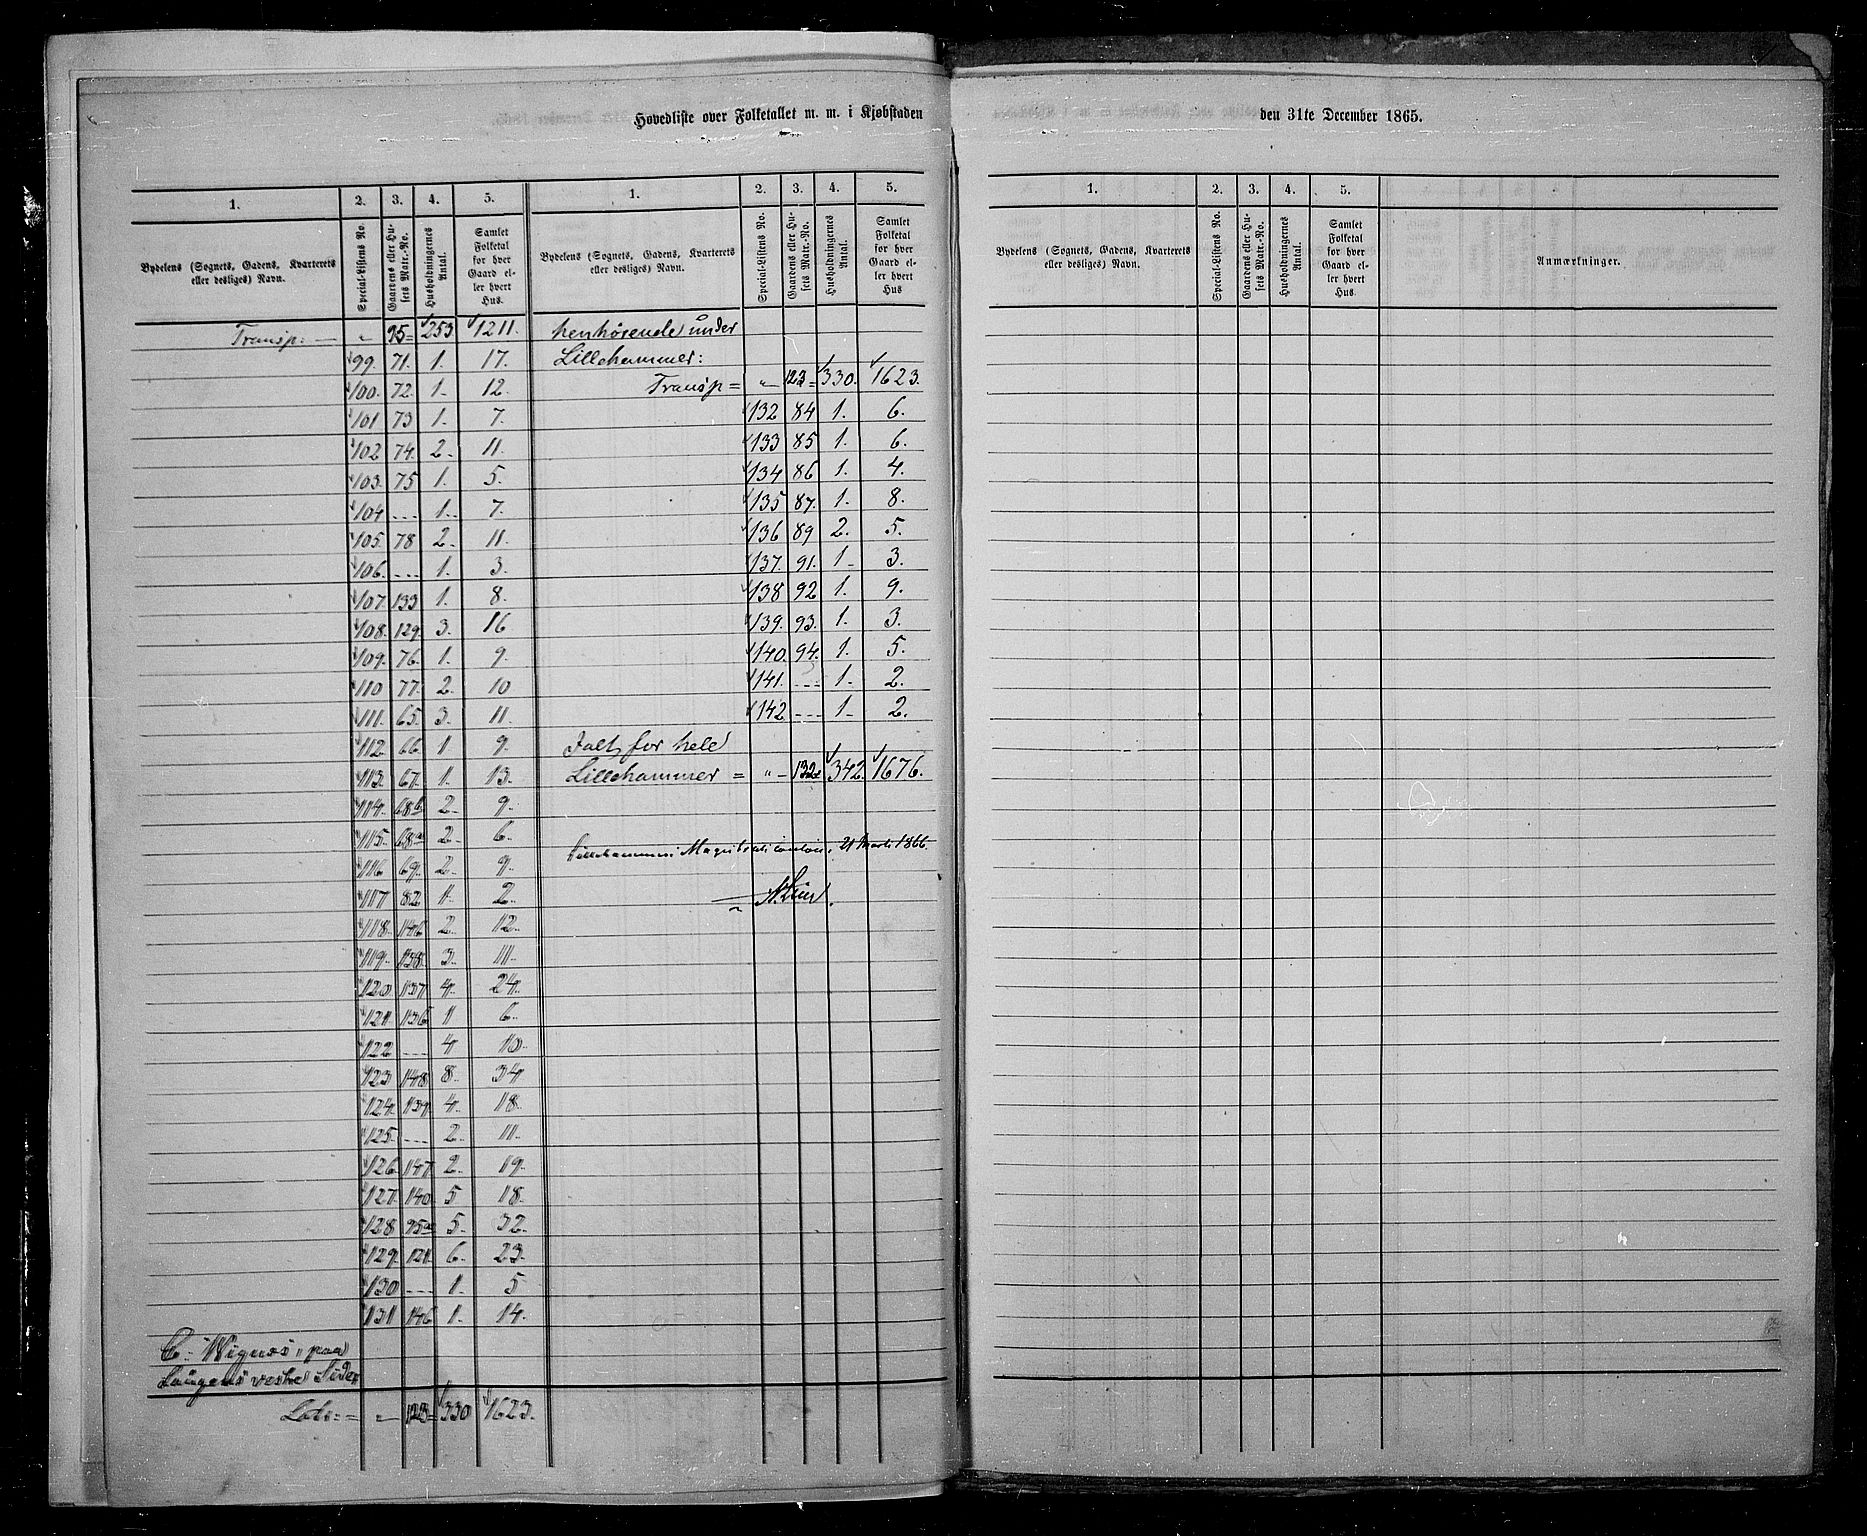 Hovedliste over Folketallet m. m. i Kjøbstaden den 31te December 1865.
1. 2. 3. 4. 5. 1. 2. 3. 4. 5.
Bydelens (Sognets, Gadens, Kvarterets eller desliges) Navn. Special-Listens No. Gaardens eller Husets Matr.-No. Husholdningernes Antal. Samlet Folketal for hver Gaard eller hvert Hus. Bydelens (Sognets, Gadens, Kvarterets eller desliges) Navn. Special-Listens No. Gaardens eller Husets Matr.-No. Husholdningernes Antal. Samlet Folketal for hver Gaard eller hvert Hus
Transp: — " 95= 253 1211.
99. 71. 1. 17.
100. 72. 1. 12.
101 73 1. 7.
102 74. 2. 11.
103. 75 1. 5.
104 --- 1. 7.
105. 78 2. 11.
106. --- 1. 3.
107. 133 1. 8.
108. 129. 3. 16
109. 76. 1. 9.
110 77. 2. 10
111. 65. 3. 11.
112. 66. 1 9.
113. 67. 1. 13.
114. 68b 2. 9.
115. 68a 2. 6.
116 69. 2. 9.
117 82 1. 2.
118. 146 2. 12.
119. 138. 3. 11.
120. 137 4. 24.
121. 136 1 6.
122 --- 4 10.
123 148 8. 34
124. 139 4. 18.
125. --- 2. 11.
126. 147. 2. 19.
127. 140. 5 18.
128 95a 5. 32.
129. 121. 6. 23.
130 --- 1. 5
131 146 1. 14.
C. Wignes, paa
Laugens vestre Side,
Lats: = " 123= 330 1623.
henhørende under
Lillehammer:
Transp = " — 123= 330. 1623.
132 84 1. 6.
133 85 1. 6.
134 86 1. 4.
135 87. 1. 8.
136 89 2. 5.
137. 91. 1. 3.
138 92 1. 9.
139. 93. 1. 3.
140. 94. 1. 5.
141. --- 1. 2.
142 --- 1. 2.
Ialt for hele
Lillehammer = " — 132= 342. 1676.
Lillehammer Magistratscontor, 21 Marts 1866.
1. 2. 3. 4. 5.
Bydelens (Sognets, Gadens, Kvarterets eller desliges) Navn. Special-Listens No. Gaardens eller Husets Matr.-No. Husholdningernes Antal. Samlet Folketal for hver Gaard eller hvert Hus Anmærkninger.